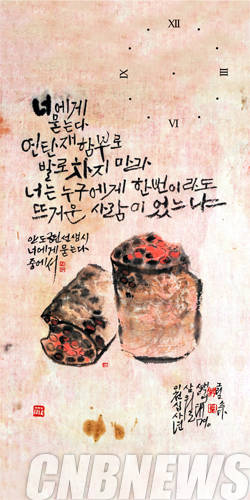 XII
IX
III
VI
너에게
묻는다
연탄재 함부로
발로 차지 마라
너는 누구에게 한번이라도
뜨거운 사람이었느냐
안도현 선생 시
너에게 묻는다
중에서
CNBNEWS